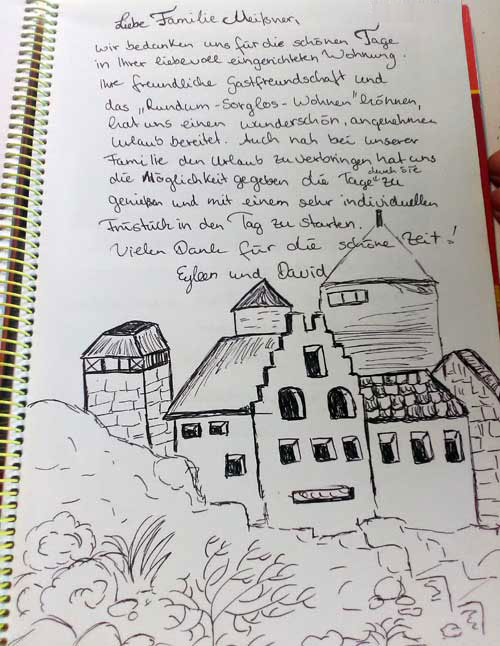 Liebe Familie Meißner,
wir bedanken uns für die schönen Tage
in Ihrer liebevoll eingerichteten Wohnung.
Ihre freundliche Gastfreundschaft und
das „Rundum-Sorglos-Wohnen" können,
hat uns einen wunderschön, angenehmen
Urlaub bereitet. Auch nah bei unserer
Familie den Urlaub zu verbringen hat uns
die Möglichkeit gegeben die Tage durch Sie zu
genießen und mit einem sehr individuellen
Frustück in den Tag zu starten.
Vielen Dank für die schöne Zeit!
Eyleen und David